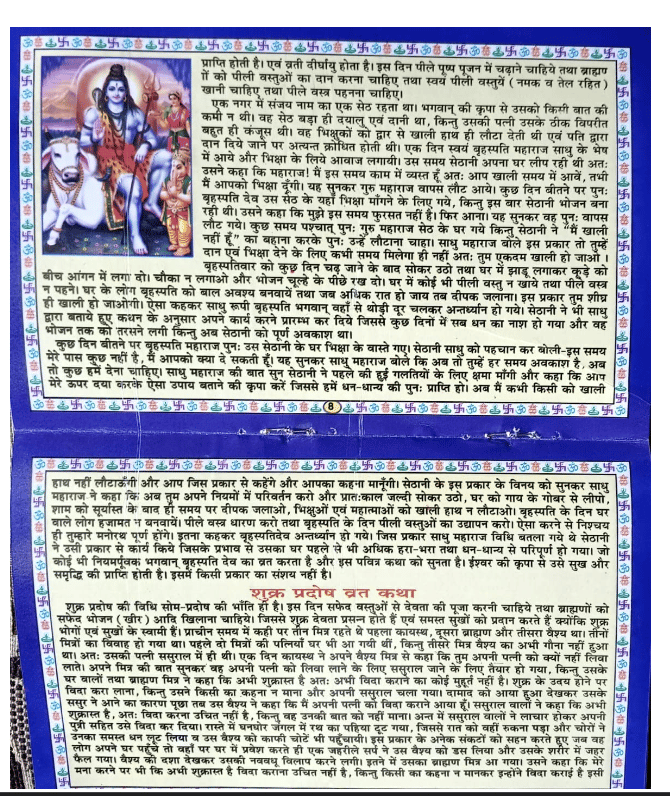 प्राप्ति होती है। एवं व्रती दीर्घायु होता है। इस दिन पीले पुष्प पूजन में चढ़ाने चाहिये तथा ब्राह्मण
ों को पीली वस्तुओं का दान करना चाहिए तथा स्वयं पीली वस्तुयें (नमक व तेल रहित)
खानी चाहिए तथा पीले वस्त्र पहनना चाहिए।
एक नगर में संजय नाम का एक सेठ रहता था। भगवान् की कृपा से उसको किसी बात की
कमी न थी। वह सेठ बड़ा ही दयालु एवं दानी था, किन्तु उसकी पत्नी उसके ठीक विपरीत
बहुत ही कंजूस थी। वह भिक्षुकों को द्वार से खाली हाथ ही लौटा देती थी एवं पति द्वारा
दान दिये जाने पर अत्यन्त क्रोधित होती थी। एक दिन स्वयं बृहस्पति महाराज साधु के भेष
में आये और भिक्षा के लिये आवाज लगायी। उस समय सेठानी अपना घर लीप रही थी अतः
उसने कहा कि महाराज! मैं इस समय काम में व्यस्त हूँ अतः आप खाली समय में आवें, तभी
मैं आपको भिक्षा दूँगी। यह सुनकर गुरु महाराज वापस लौट आये। कुछ दिन बीतने पर पुनः
बृहस्पति देव उस सेठ के यहाँ भिक्षा माँगने के लिए गये, किन्तु इस बार सेठानी भोजन बना
रही थी। उसने कहा कि मुझे इस समय फुरसत नहीं है। फिर आना। यह सुनकर वह पुनः वापस
लौट गये। कुछ समय पश्चात् पुनः गुरु महाराज सेठ के घर गये किन्तु सेठानी ने "मैं खाली
नहीं हूँ" का बहाना करके पुनः उन्हें लौटाना चाहा। साधु महाराज बोले इस प्रकार तो तुम्हें
दान एवं भिक्षा देने के लिए कभी समय मिलेगा ही नहीं अतः तुम एकदम खाली हो जाओ।
बृहस्पतिवार को कुछ दिन चढ़ जाने के बाद सोकर उठो तथा घर में झाड़ू लगाकर कूड़े को
बीच आंगन में लगा दो। चौका न लगाओ और भोजन चूल्हे के पीछे रख दो। घर में कोई भी पीली वस्तु न खाये तथा पीले वस्त्र
न पहने। घर के लोग बृहस्पति को बाल अवश्य बनवायें तथा जब अधिक रात हो जाय तब दीपक जलाना। इस प्रकार तुम शीघ्र
ही खाली हो जाओगी। ऐसा कहकर साधु रूपी बृहस्पति भगवान् वहाँ से थोड़ी दूर चलकर अन्तर्ध्यान हो गये। सेठानी ने भी साधु
द्वारा बताये हुए कथन के अनुसार अपने कार्य करने प्रारम्भ कर दिये जिससे कुछ दिनों में सब धन का नाश हो गया और वह
भोजन तक को तरसने लगी किन्तु अब सेठानी को पूर्ण अवकाश था।
कुछ दिन बीतने पर बृहस्पति महाराज पुनः उस सेठानी के घर भिक्षा के वास्ते गए। सेठानी साधु को पहचान कर बोली-इस समय
मेरे पास कुछ नहीं है, मैं आपको क्या दे सकती हूँ। यह सुनकर साधु महाराज बोले कि अब तो तुम्हें हर समय अवकाश है, अब
तो कुछ हमें देना चाहिए। साधु महाराज की बात सुन सेठानी ने पहले की हुई गलतियों के लिए क्षमा माँगी और कहा कि आप
मेरे ऊपर दया करके ऐसा उपाय बताने की कृपा करें जिससे हमें धन-धान्य की पुनः प्राप्ति हो। अब मैं कभी किसी को खाली
8
हाथ नहीं लौटाऊँगी और आप जिस प्रकार से कहेंगे और आपका कहना मानूँगी। सेठानी के इस प्रकार के विनय को सुनकर साधु
महाराज ने कहा कि अब तुम अपने नियमों में परिवर्तन करो और प्रातःकाल जल्दी सोकर उठो, घर को गाय के गोबर से लीपो,
शाम को सूर्यास्त के बाद ही समय पर दीपक जलाओ, भिक्षुओं एवं महात्माओं को खाली हाथ न लौटाओ। बृहस्पति के दिन घर
वाले लोग हजामत न बनवायें। पीले वस्त्र धारण करो तथा बृहस्पति के दिन पीली वस्तुओं का उद्यापन करो। ऐसा करने से निश्चय
ही तुम्हारे मनोरथ पूर्ण होंगे। इतना कहकर बृहस्पतिदेव अन्तर्ध्यान हो गये। जिस प्रकार साधु महाराज विधि बतला गये थे सेठानी
ने उसी प्रकार से कार्य किये जिसके प्रभाव से उसका घर पहले से भी अधिक हरा-भरा तथा धन-धान्य से परिपूर्ण हो गया। जो
कोई भी नियमपूर्वक भगवान् बृहस्पति देव का व्रत करता है और इस पवित्र कथा को सुनता है। ईश्वर की कृपा से उसे सुख और
समृद्धि की प्राप्ति होती है। इसमें किसी प्रकार का संशय नहीं है।
शुक्र प्रदोष व्रत कथा
शुक्र प्रदोष की विधि सोम-प्रदोष की भाँति ही है। इस दिन सफेद वस्तुओं से देवता की पूजा करनी चाहिये तथा ब्राह्मणों को
सफेद भोजन (खीर) आदि खिलाना चाहिये। जिससे शुक्र देवता प्रसन्न होते हैं एवं समस्त सुखों को प्रदान करते हैं क्योंकि शुक्र
भोगों एवं सुखों के स्वामी हैं। प्राचीन समय में कही पर तीन मित्र रहते थे पहला कायस्थ, दूसरा ब्राह्मण और तीसरा वैश्य था। तीनों
मित्रों का विवाह हो गया था। पहले दो मित्रों की पत्नियाँ घर भी आ गयी थीं, किन्तु तीसरे मित्र वैश्य का अभी गौना नहीं हुआ
था। अतः उसकी पत्नी ससुराल में ही थी। एक दिन कायस्थ ने अपने वैश्य मित्र से कहा कि तुम अपनी पत्नी को क्यों नहीं लिवा
लाते। अपने मित्र की बात सुनकर वह अपनी पत्नी को लिवा लाने के लिए ससुराल जाने के लिए तैयार हो गया, किन्तु उसके
घर वालों तथा ब्राह्मण मित्र ने कहा कि अभी शुक्रास्त है अतः अभी विदा कराने का कोई मुहूर्त नहीं है। शुक्र के उदय होने पर
विदा करा लाना, किन्तु उसने किसी का कहना न माना और अपनी ससुराल चला गया। दामाद को आया हुआ देखकर उसके
ससुर ने आने का कारण पूछा तब उस वैश्य ने कहा कि मैं अपनी पत्नी को विदा कराने आया हूँ। ससुराल वालों ने कहा कि अभी
शुक्रास्त है, अतः विदा करना उचित नहीं है, किन्तु वह उनकी बात को नहीं माना। अन्त में ससुराल वालों ने लाचार होकर अपनी
पुत्री सहित उसे विदा कर दिया। रास्ते में घनघोर जंगल में रथ का पहिया टूट गया, जिससे रात को वहीं रुकना पड़ा और चोरों ने
उनका समस्त धन लूट लिया व उस वैश्य को काफी चोटें भी पहुँचायी। इस प्रकार के अनेक संकटों को सहन करते हुए जब वह
लोग अपने घर पहुँचे तो वहाँ पर घर में प्रवेश करते ही एक जहरीले सर्प ने उस वैश्य को डस लिया और उसके शरीर में जहर
फैल गया। वैश्य की दशा देखकर उसकी नववधू विलाप करने लगी। इतने में उसका ब्राह्मण मित्र आ गया। उसने कहा कि मेरे
मना करने पर भी कि अभी शुक्रास्त है विदा कराना उचित नहीं है, किन्तु किसी का कहना न मानकर इन्होंने विदा कराई है इसी